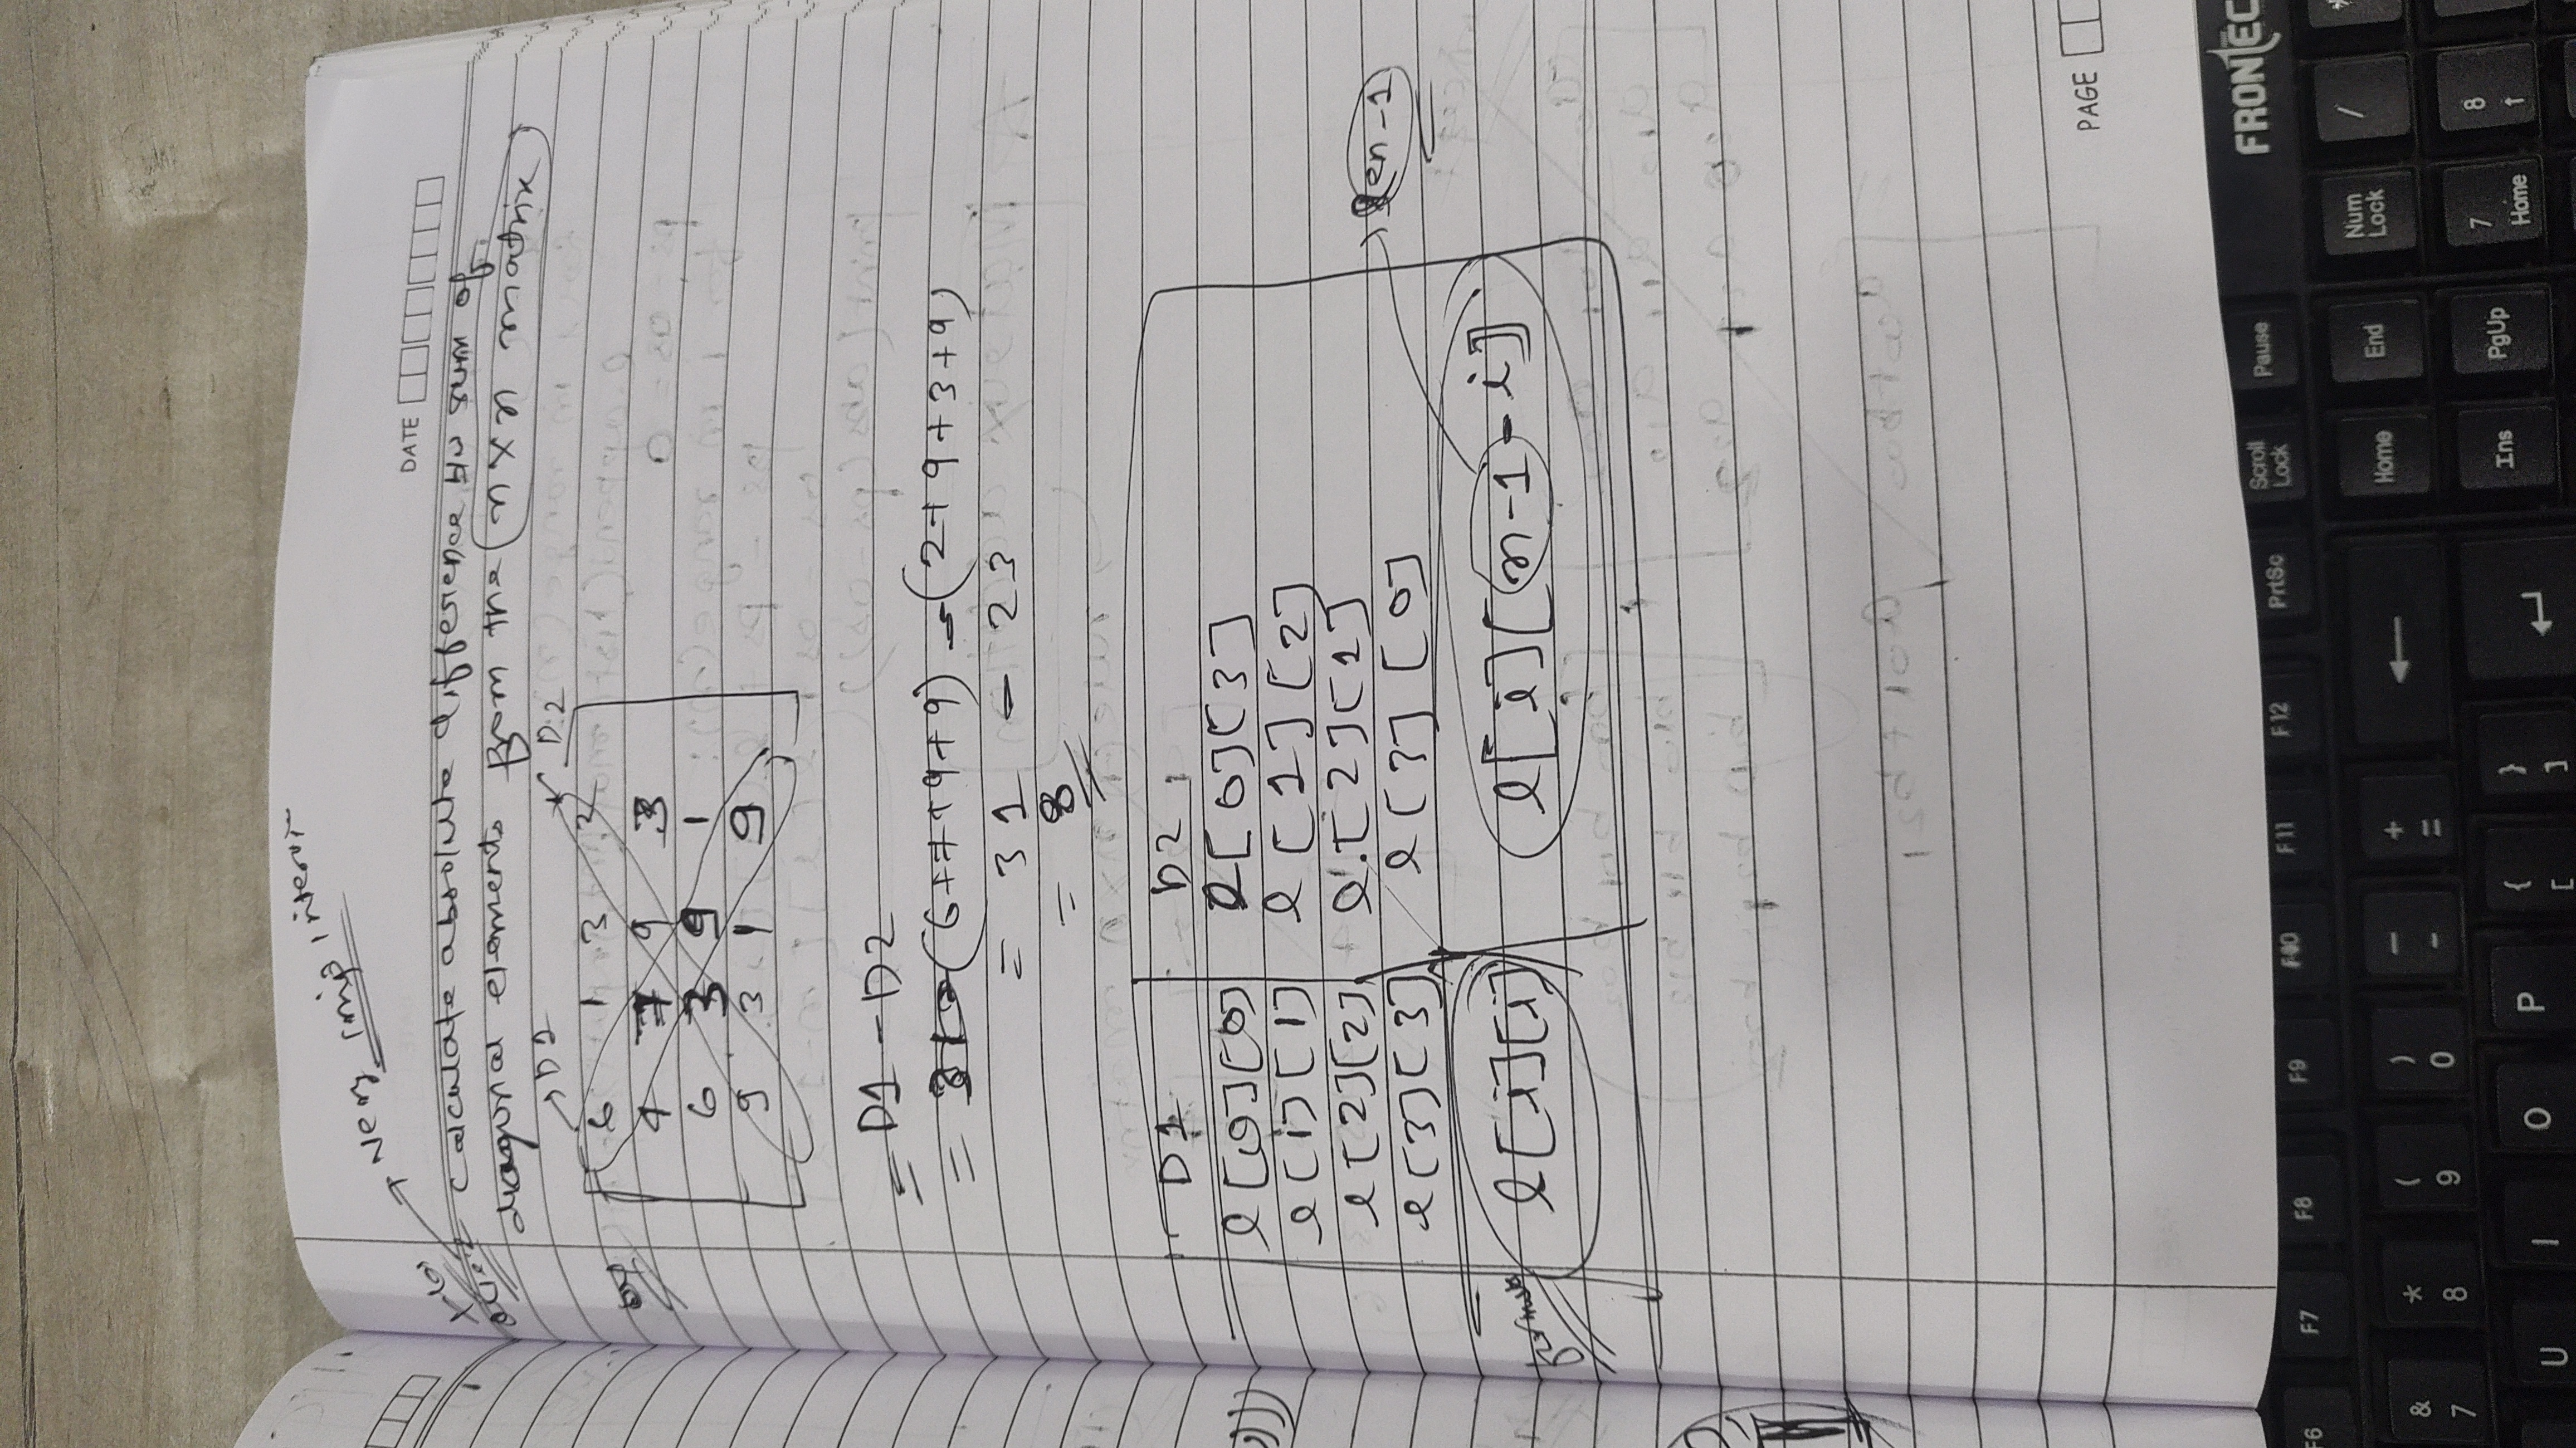 Very imp interv
DATE
calculate absolute difference b/w sum of
diagonal elements from the (n×n matrix)
D1 D2
6 1 3 2
4 7 9 3
6 3 9 1
9 3 1 9
= D1 - D2
= (6+7+9+9) - (2+9+3+9)
= 31 - 23
= 8
D1 D2
l[0][0] l[0][3]
l[1][1] l[1][2]
l[2][2] l[2][1]
l[3][3] l[3][0]
len-1
formula l[i][i] l[i][n-1-i]
PAGE
FRONTEC
F6 F7 F8 F9 F10 F11 F12 PrtSc Scroll Lock Pause
& 7 * 8 ( 9 ) 0 _ - + = Home End Num Lock /
U I O P { [ } ] Ins PgUp 7 Home 8